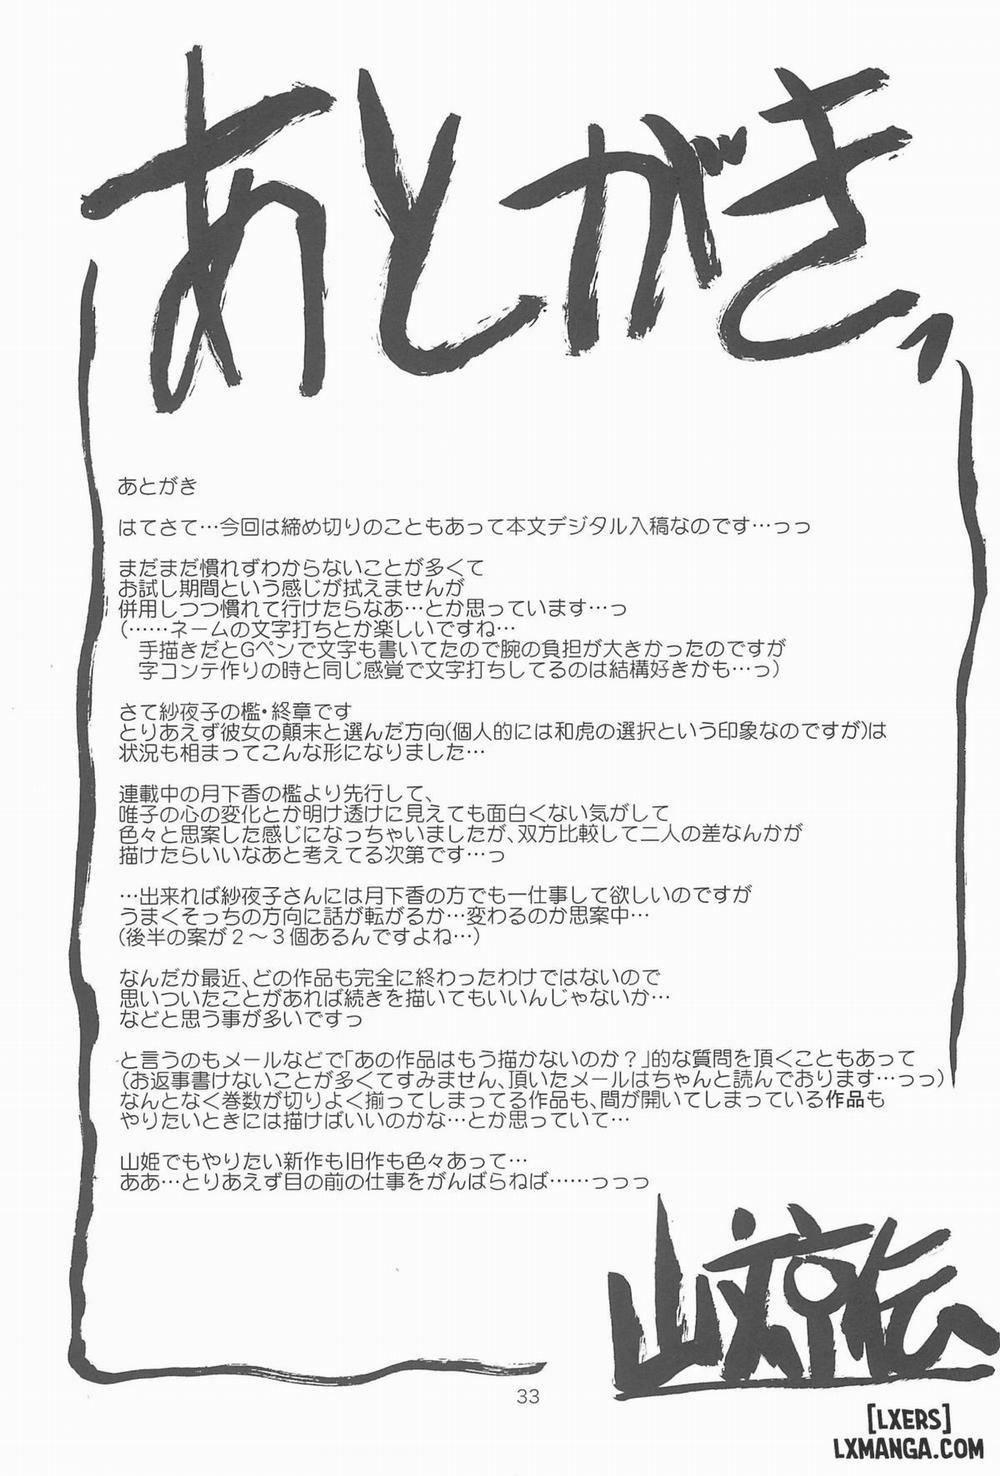 あとがき
あとがき
はてさて…今回は締め切りのこともあって本文デジタル入稿なのです…っっ
まだまだ慣れずわからないことが多くて
お試し期間という感じが拭えませんが
併用しつつ慣れて行けたらなあ…とか思っています…っ
(……ネームの文字打ちとか楽しいですね…
手描きだとGペンで文字も書いてたので腕の負担が大きかったのですが
字コンテ作りの時と同じ感覚で文字打ちしてるのは結構好きかも…っ)
さて紗夜子の檻・終章です
とりあえず彼女の顛末と選んだ方向(個人的には和虎の選択という印象なのですが)は
状況も相まってこんな形になりました…
連載中の月下香の檻より先行して、
唯子の心の変化とか明け透けに見えても面白くない気がして
色々と思案した感じになっちゃいましたが、双方比較して二人の差なんかが
描けたらいいなあと考えてる次第です…っ
…出来れば紗夜子さんには月下香の方でも一仕事して欲しいのですが
うまくそっちの方向に話が転がるか…変わるのか思案中…
(後半の案が２～３個あるんですよね…)
なんだか最近、どの作品も完全に終わったわけではないので
思いついたことがあれば続きを描いてもいいんじゃないか…
などと思う事が多いですっ
と言うのもメールなどで「あの作品はもう描かないのか？」的な質問を頂くこともあって
(お返事書けないことが多くてすみません、頂いたメールはちゃんと読んでおります…っっ)
なんとなく巻数が切りよく揃ってしまってる作品も、間が開いてしまっている作品も
やりたいときには描けばいいのかな…とか思っていて…
山姫でもやりたい新作も旧作も色々あって…
ああ…とりあえず目の前の仕事をがんばらねば……っっっ
山文京伝
33
[LXERS]
LXMANGA.COM